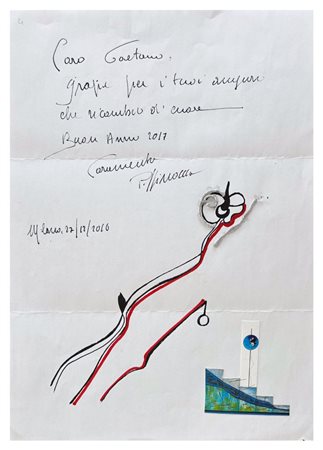 Caro Gaetano,
grazie per i tuoi auguri
che ricambio di cuore
Buon Anno 2017
Caramente
Milano, 22/12/2016